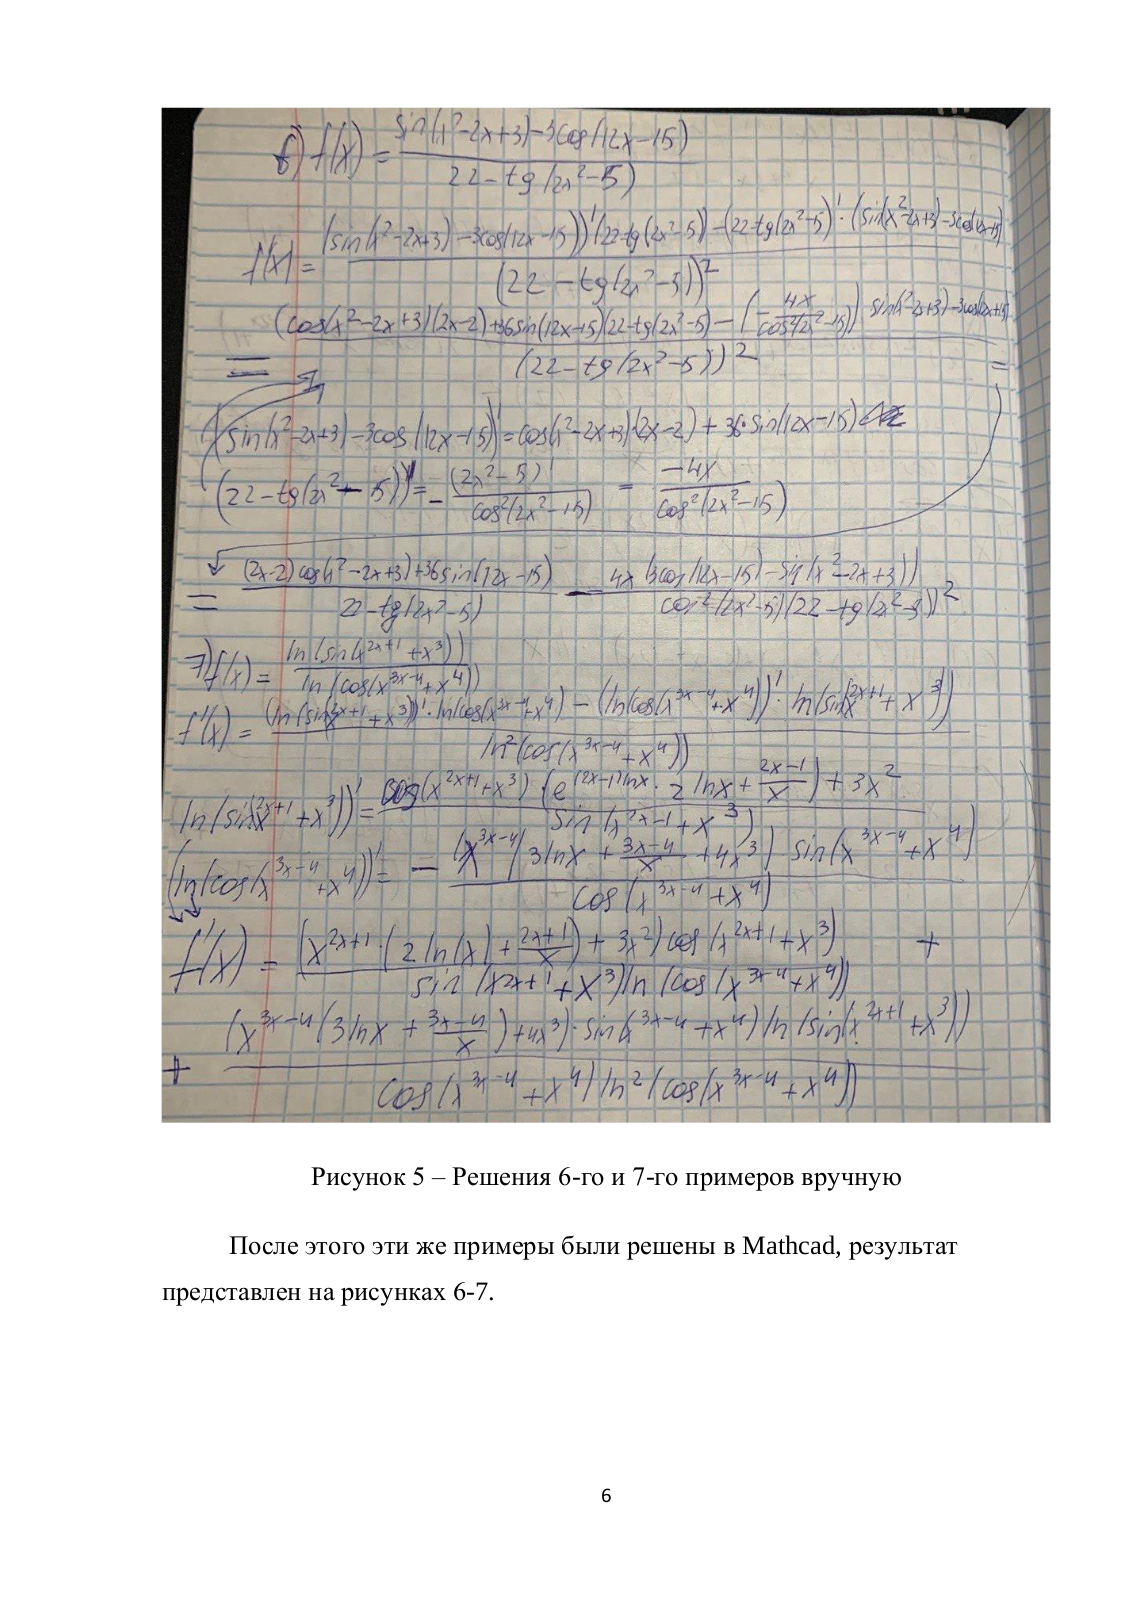 6) f(x) = (sin(x²-2x+3)-3cos(12x-15)) / (22-tg(2x²-15))
f'(x) = ((sin(x²-2x+3)-3cos(12x-15))'(22-tg(2x²-5))-(22-tg(2x²-15)'·(sin(x²-2x+3)-3cos(12x-15)) / (22-tg(2x²-5))²
= ((cos(x²-2x+3)(2x-2)+36sin(12x-15)(22-tg(2x²-5)-(-4x/cos²(2x²-15))·sin(x²-2x+3)-3cos(12x+15) / (22-tg(2x²-5))² =
(sin(x²-2x+3)-3cos(12x-15))'=cos(x²-2x+3)·(2x-2)+36·sin(12x-15)
(22-tg(2x²-15))'=-(2x²-5)'/cos²(2x²-15) = -4x/cos²(2x²-15)
= ((2x-2)cos(x²-2x+3)+36sin(12x-15))/(22-tg(2x²-5)) - 4x(3cos(12x-15)-sin(x²-2x+3))/(cos²(2x²-5)(22-tg(2x²-5))²
7) f(x) = ln(sin(x^(2x+1)+x³))/ln(cos(x^(3x-4)+x⁴))
f'(x) = ((ln(sin(x^(2x+1)+x³))'·ln(cos(x^(3x-4)+x⁴)-(ln(cos(x^(3x-4)+x⁴))'·ln(sin(x^(2x+1)+x³)) / ln²(cos(x^(3x-4)+x⁴))
ln(sin(x^(2x+1)+x³))'= cos(x^(2x+1)+x³)·(e^((2x-1)lnx)·2lnx+(2x-1)/x)+3x² / sin(x^(2x-1)+x³)
(ln(cos(x^(3x-4)+x⁴))'= -(x^(3x-4)(3lnx+(3x-4)/x+4x³) sin(x^(3x-4)+x⁴) / cos(x^(3x-4)+x⁴)
f'(x) = (x^(2x+1)·(2ln(x)+(2x+1)/x)+3x²)cos(x^(2x+1)+x³) / sin(x^(2x+1)+x³)ln(cos(x^(3x-4)+x⁴)) +
+ (x^(3x-4)(3lnx+(3x-4)/x)+4x³)·sin(x^(3x-4)+x⁴)ln(sin(x^(2x+1)+x³)) / cos(x^(3x-4)+x⁴)ln²(cos(x^(3x-4)+x⁴))
Рисунок 5 – Решения 6-го и 7-го примеров вручную
После этого эти же примеры были решены в Mathcad, результат
представлен на рисунках 6-7.
6